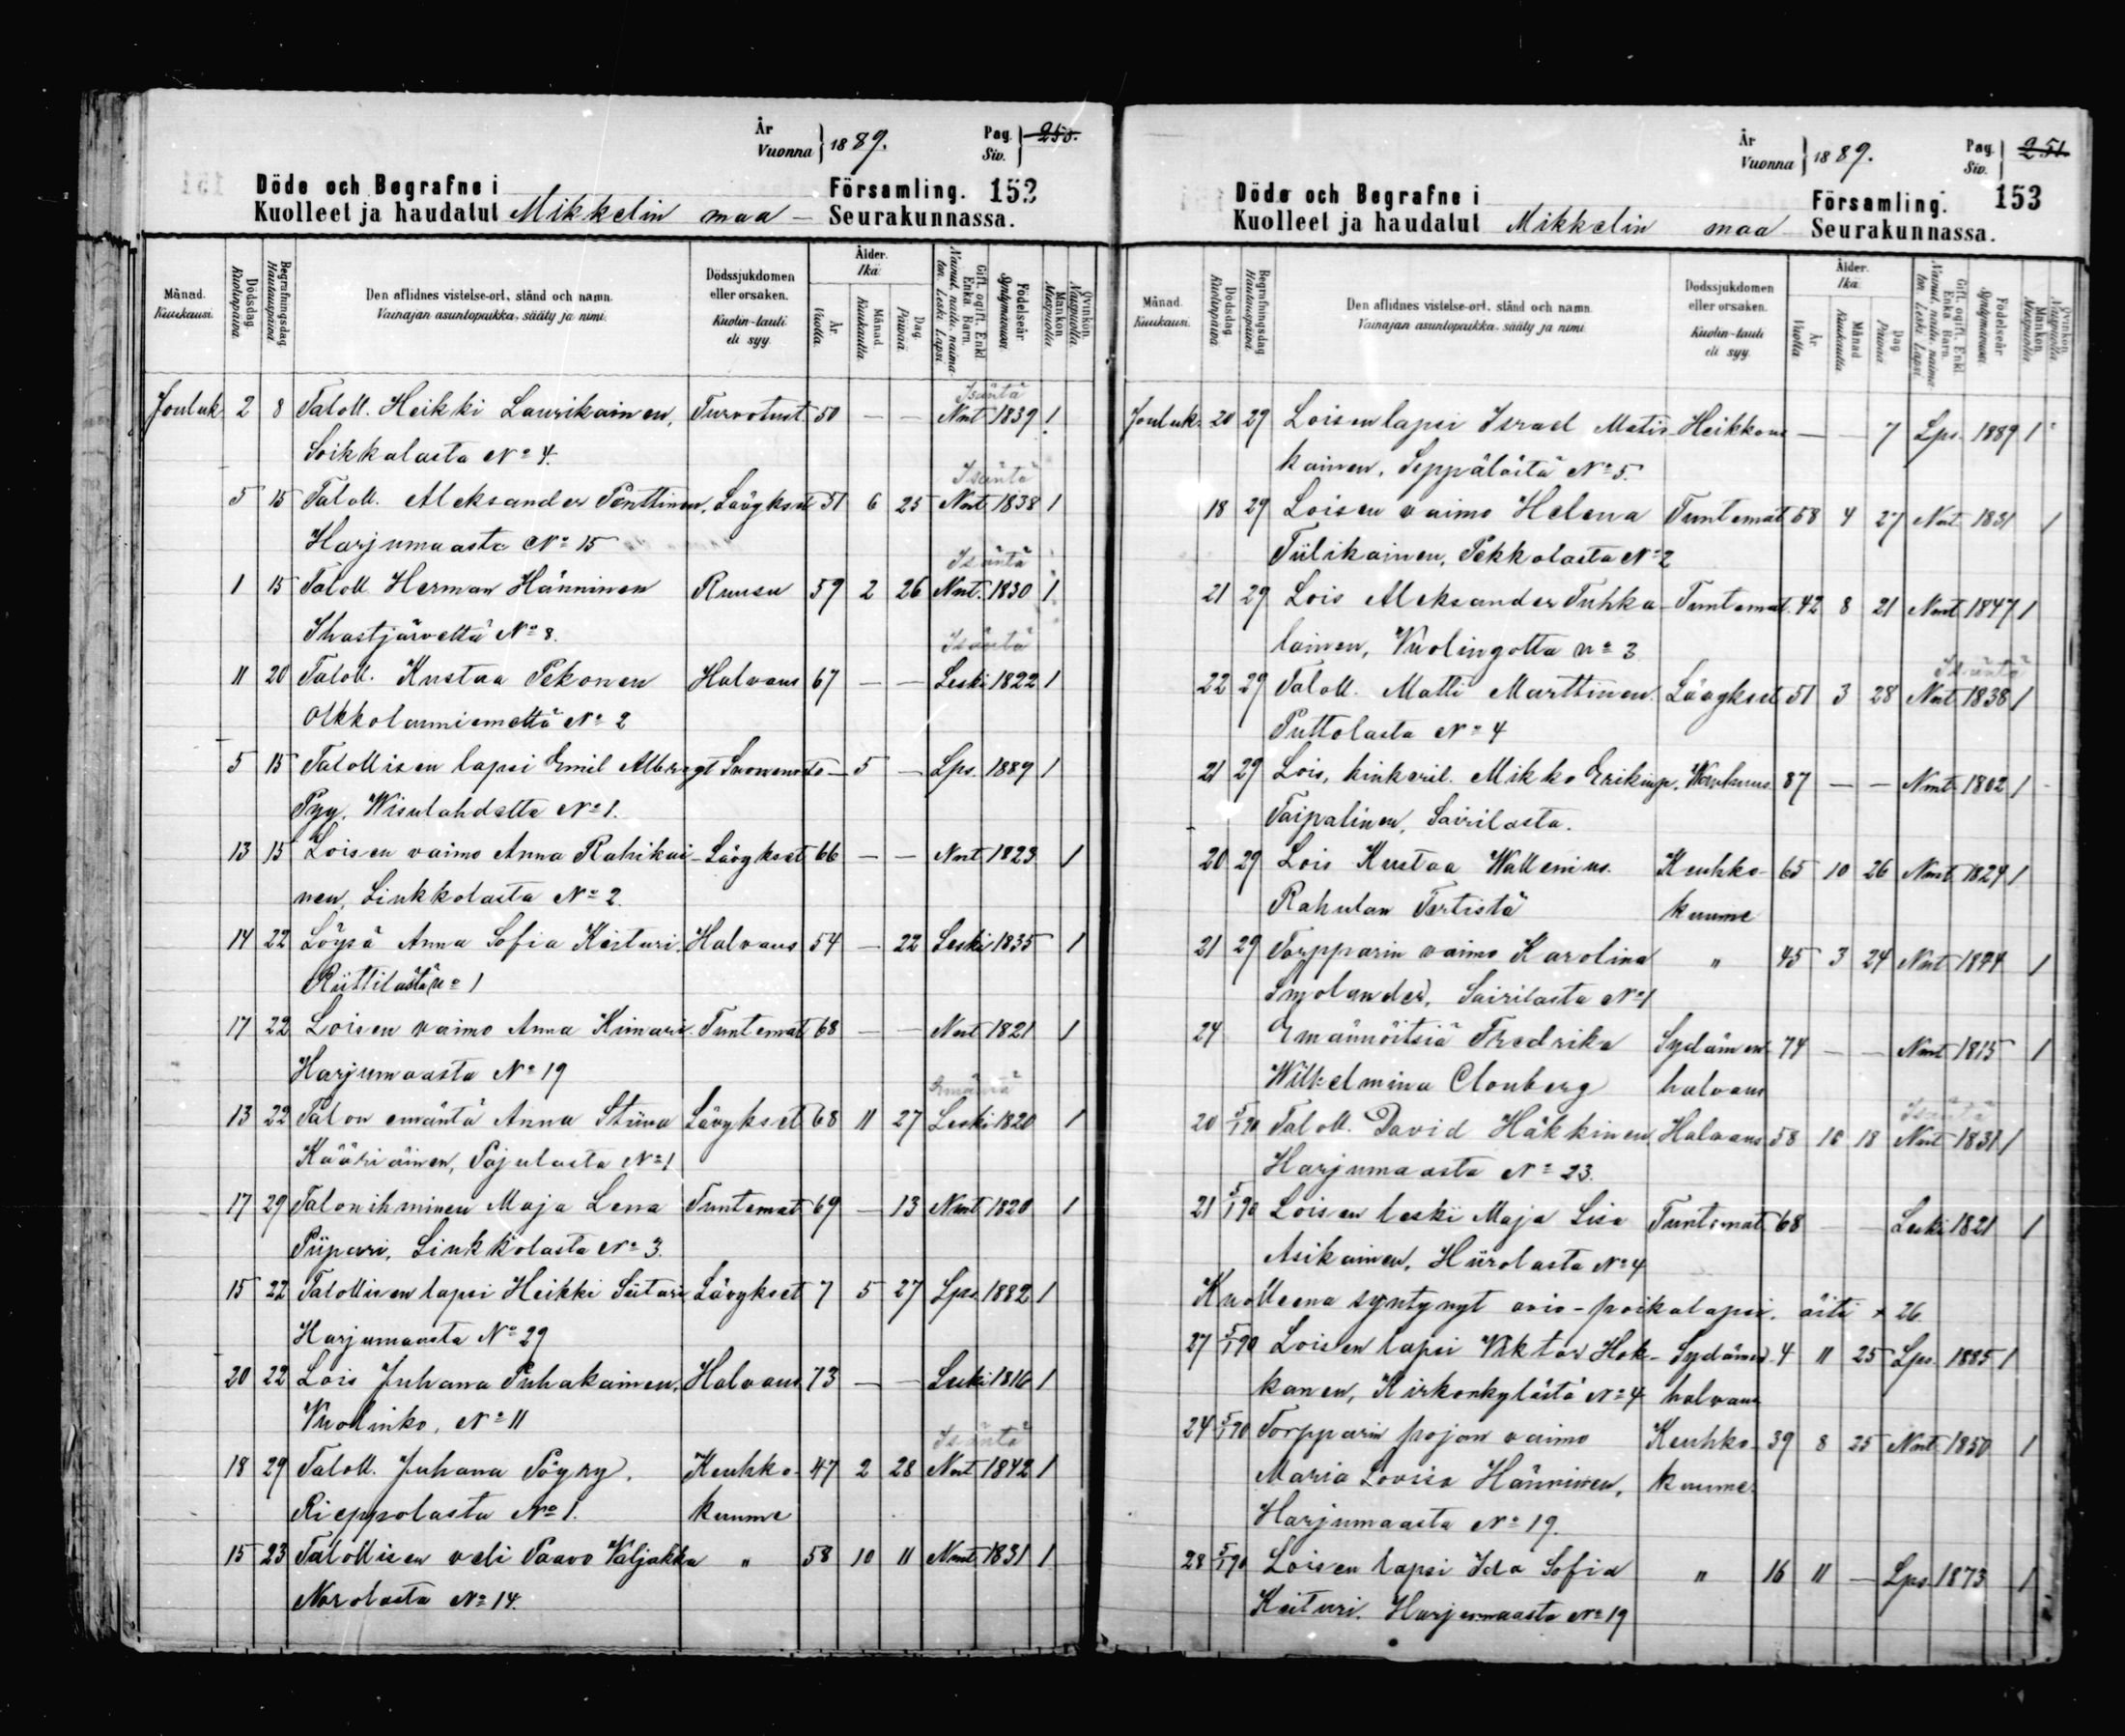 År
Vuonna } 1889.
Pag.
Siv. } 250.
Döde och Begrafne i
Församling. 152
Kuolleet ja haudatut Mikkelin maa – Seurakunnassa.
Månad.
Kuukausi.
Dödsdag.
Kuolinpäivä.
Begrafningsdag.
Hautauspäivä.
Den aflidnes vistelse-ort, stånd och namn.
Vainajan asuntopaikka, sääty ja nimi.
Dödssjukdomen
eller orsaken.
Kuolin-tauti
eli syy.
Ålder.
Ikä.
År.
Vuotta.
Månad.
Kuukautta.
Dag.
Päivää.
Gift, ogift, Enkl.
Enka. Barn.
Nainut, naitu, naima-
ton. Leski. Lapsi.
Födelseår.
Syntymävuosi.
Mankön.
Miespuolta.
Qvinkön.
Naispuolta.
Isäntä
Jouluk. 2 8 Taloll. Heikki Laurikainen, Turvotust. 50 — — Nnt 1839 1
Soikkalasta No 4.
Isäntä
5 15 Taloll. Aleksander Penttinen, Lävykset 51 6 25 Nnt 1838 1
Harjumaasta No 15
Isäntä
1 15 Taloll. Herman Hänninen Ruusu 59 2 26 Nnt. 1830 1
Ihastjärveltä No 8.
Isäntä
11 20 Taloll. Kustaa Pekonen Halvaus 67 — — Leski 1822 1
Olkkolanniemeltä No 2
5 15 Talollisen lapsi Emil Albregt — 5 — Lps. 1889 1
Pyy, Wisulahdelta No 1.
13 15 Loisen vaimo Anna Rahikai- Lävykset 66 — — Nnt 1823 1
nen, Linkkolasta No 2.
14 22 Löysä Anna Sofia Keituri. Halvaus 54 — 22 Leski 1835 1
No 1
17 22 Loisen vaimo Anna Kinari Tuntemat 68 — — Nnt 1821 1
Harjumaasta No 19
Emäntä
13 22 Talon emäntä Anna Stiina Lävykset 68 11 27 Leski 1820 1
Kääriäinen, Pajulasta No 1
17 29 Talon ihminen Maja Lena Tuntemat 69 — 13 Nnt 1820 1
Piipari, Linkkolasta No 3.
15 22 Talollisen lapsi Heikki Siitari Lävykset 7 5 27 Lps 1882 1
Harjumaasta No 29
20 22 Lois Juhana Puhakainen, Halvaus 73 — — Leski 1816 1
Vuolinko, No 11
Isäntä
18 29 Taloll. Juhana Pöyry, Keuhko- 47 2 28 Nnt 1842 1
Rieppolasta No 1. kuume
15 23 Talollisen veli Paavo Väljakka " 58 10 11 Nnt 1831 1
Norolasta No 14.
År
Vuonna } 1889.
Pag.
Siv. } 251.
Döde och Begrafne i
Församling. 153
Kuolleet ja haudatut Mikkelin maa Seurakunnassa.
Månad.
Kuukausi.
Dödsdag.
Kuolinpäivä.
Begrafningsdag.
Hautauspäivä.
Den aflidnes vistelse-ort, stånd och namn.
Vainajan asuntopaikka, sääty ja nimi.
Dödssjukdomen
eller orsaken.
Kuolin-tauti
eli syy.
Ålder.
Ikä.
År.
Vuotta.
Månad.
Kuukautta.
Dag.
Päivää.
Gift, ogift, Enkl.
Enka. Barn.
Nainut, naitu, naima-
ton. Leski. Lapsi.
Födelseår.
Syntymävuosi.
Mankön.
Miespuolta.
Qvinkön.
Naispuolta.
Jouluk. 20 29 Loisen lapsi Israel Matis- Heikkous — — 7 Lps. 1889 1
kainen, Seppälästä No 5.
18 29 Loisen vaimo Helena Tuntemat 58 4 27 Nnt 1831 1
Tiilikainen, Pekkolasta No 2
21 29 Lois Aleksander Tuhka- Tuntemat. 42 8 21 Nnt 1847 1
lainen, Vuolingolta No 3
Isäntä
22 29 Taloll. Matti Marttinen. Lävykset 51 3 28 Nnt 1838 1
Puttolasta No 4
21 29 Lois, Mikko Erikinp. Wanhuus 87 — — Nnt 1802 1
Taipalinen, Sairilasta.
20 29 Lois Kustaa Wallenius. Keuhko- 65 10 26 Nnt 1824 1
Rahulan Tertistä kuume
21 29 Torpparin vaimo Karolina " 45 3 24 Nnt 1844 1
Smolander, Sairilasta No 1
24 Emännöitsiä Fredrika Sydämen- 74 — — Nnt 1815 1
Wilhelmina Clonberg halvaus
Isäntä
20 5/1 90 Taloll. David Häkkinen, Halvaus 58 10 18 Nnt 1831 1
Harjumaasta No 23.
21 5/1 90 Loisen leski Maja Lisa Tuntemat 68 — — Leski 1821 1
Asikainen, Hiirolasta No 4
Kuolleena syntynyt avio-poikalapsi. äiti * 26.
27 5/1 90 Loisen lapsi Viktor Hok- Sydämen- 4 11 25 Lps. 1885 1
kanen, Kirkonkylästä No 4 halvaus
24 5/1 90 Torpparin pojan vaimo Keuhko- 39 8 25 Nnt. 1850 1
Maria Lovisa Hänninen, kuume
Harjumaasta No 19.
28 5/1 90 Loisen lapsi Ida Sofia " 16 11 — Lps. 1873 1
Keituri. Harjumaasta No 19